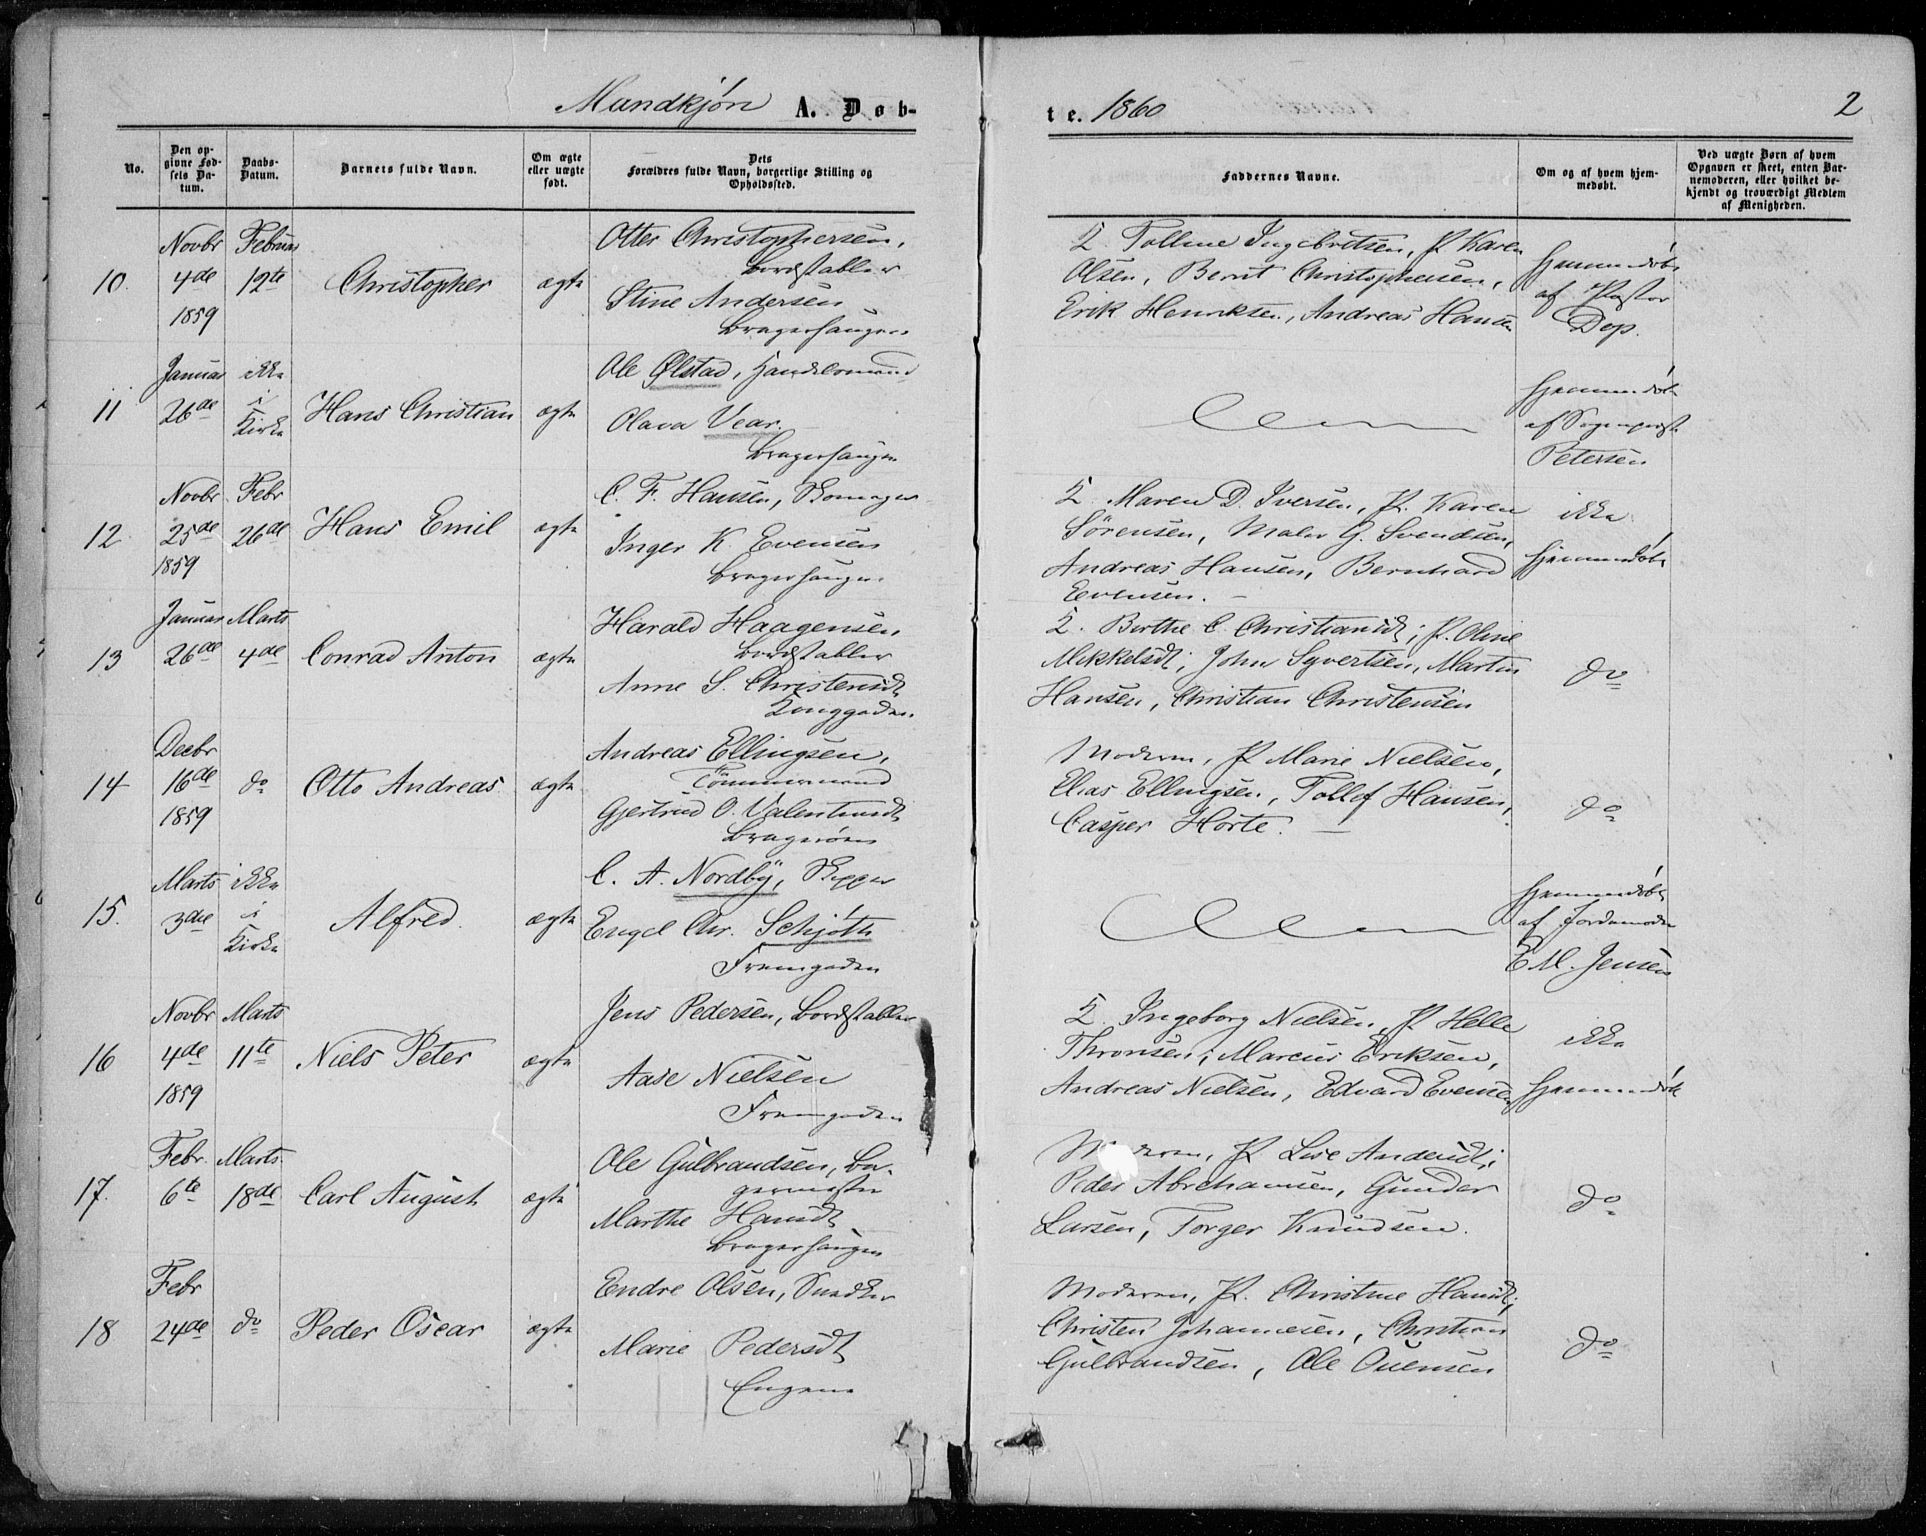 Mandkjøn A. Døb-
No.
Den opgivne Fødsels Datum.
Daabs-Datum.
Barnets fulde Navn.
Om ægte eller uægte født.
Dets Forældres fulde Navn, borgerlige Stilling og Opholdssted.
10.
Novbr
4de
1859
Februar
12te
Christopher
ægte
Otter Christophersen,
Bordstabler
Stine Andersen
Bragerhaugen
11
Januar
26de
ikke
i
Kirke
Hans Christian
ægte
Ole Ølstad, Handelsmand
Olava Vear.
Bragerhaugen
12.
Novbr
25de
1859
Febr
26de
Hans Emil
ægte
C. F. Hansen, Skomager
Inger K. Evensen
Bragerhaugen
13
Januar
26de
Marts
4de
Conrad Anton
ægte
Harald Haagensen
Bordstabler
Anne S. Christensdt
Konggaden
14
Decbr
16de
1859
do
Otto Andreas
ægte
Andreas Ellingsen,
Tömmermand
Gjertrud O. Valentinsdt
Bragerøen
15.
Marts
3die
ikke
i
Kirke
Alfred.
ægte
C. A. Nordbÿ, Skipper
Engel Chr. Schjøth
Fremgaden
16
Novbr
4de
1859
Marts
11te
Niels Peter
ægte
Jens Pedersen, Bordstabler
Aase Nielsen
Fremgaden
17.
Febr.
6te
Marts
18de
Carl August
ægte
Ole Gulbrandsen, Ba-
germester
Marthe Hansdt
Bragerhaugen
18
Febr
24de
do
Peder Oscar
ægte
Endre Olsen, Snedker
Marie Pedersdt
Engene
te. 1860
2
Faddernes Navne.
Om og af hvem hjemmedøbt.
Ved uægte Børn af hvem Opgaven er skeet, enten Barnemoderen, eller hvilket bekjendt og troværdigt Medlem af Menigheden.
Tolline Ingebretsen, P. Karen
Olsen, Bernt Christophersen,
Erik Henriksen, Andreas Hansen
Hjemmedøbt
af Pastor
Dop.
Hjemmedøbt
af Sogneprest
Petersen
Maren D. Iversen, P. Karen
Sörensen, Malen G. Svendsen,
Andreas Hansen, Bernhard
Evensen. –
ikke
Hjemmedøbt
Berthe C. Christiansdt, P. Oline
Mikkelsdt, John Syvertsen, Martin
Hansen, Christian Christensen
do
Moderen, P. Marie Nielsen,
Elias Ellingsen, Tollef Hansen,
Casper Horte. –
do
Hjemmedøbt
af Jordemoder
E M. Jensen
Ingeborg Nielsen, P. Helle
Thronsen, Marcus Eriksen,
Andreas Nielsen, Edvard Evensen
ikke
Hjemmedøbt
Moderen, P. Lise Andersdt,
Peder Abrahamsen, Gunder
Larsen, Torger Knudsen.
do
Moderen, P. Christine Hansdt,
Christen Johannesen, Christian
Gulbrandsen, Ole Evensen
do